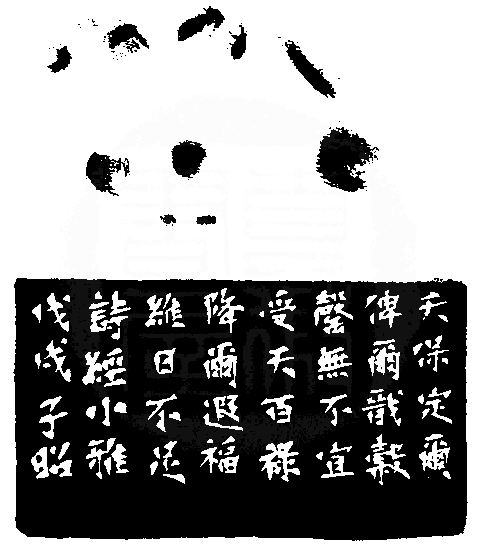 天保定爾
俾爾戩穀
罄無不宜
受天百祿
降爾遐福
維日不足
詩經小雅
戊戌子昭